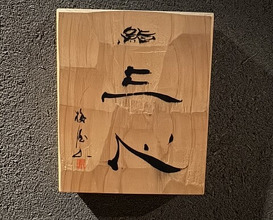 鮨 三心